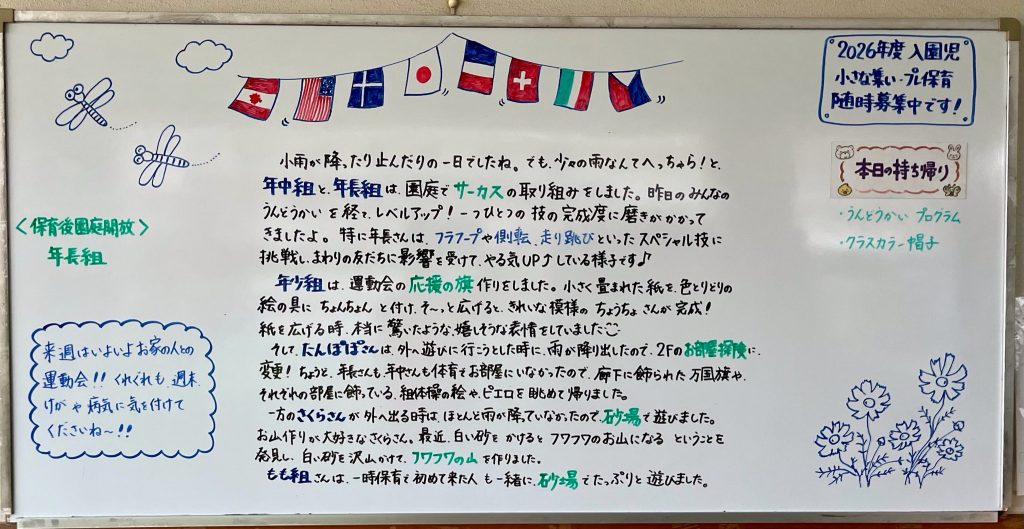 2026年度 入園児
小さな集い・プレ保育
随時募集中です!
本日の持ち帰り
・うんどうかい プログラム
・クラスカラー帽子
<保育後園庭開放>
年長組
小雨が降ったり止んだりの一日でしたね。でも、少々の雨なんてへっちゃら!と、
年中組と、年長組は、園庭でサーカスの取り組みをしました。昨日のみんなの
うんどうかいを経て、レベルアップ!一つひとつの技の完成度に磨きがかかって
きましたよ。特に年長さんは、フラフープや側転、走り跳びといったスペシャル技に
挑戦し、まわりの友だちに影響を受けて、やる気UP♪している様子です♪
年少組は、運動会の応援の旗作りをしました。小さく畳まれた紙を、色とりどりの
絵の具にちょんちょんと付け、そ〜っと広げると、きれいな模様のちょうちょさんが完成!
紙を広げる時、本当に驚いたような、嬉しそうな表情をしていました☺
そして、たんぽぽさんは、外へ遊びに行こうとした時に、雨が降り出したので、2Fのお部屋探険に
変更!ちょうど、年長さんも、年中さんも体育でお部屋にいなかったので、廊下に飾られた万国旗や、
それぞれの部屋に飾っている、組体操の絵や、ピエロを眺めて帰りました。
一方のさくらさんが外へ出る時は、ほとんど雨が降っていなかったので、砂場で遊びました。
お山作りが大好きなさくらさん。最近、白い砂をかけるとフワフワのお山になるということを
発見し、白い砂を沢山かけて、フワフワの山を作りました。
もも組さんは、一時保育で初めて来た人も一緒に、砂場でたっぷりと遊びました。
来週はいよいよお家の人との
運動会!!くれぐれも、週末、
けがや病気に気を付けて
くださいね〜!!